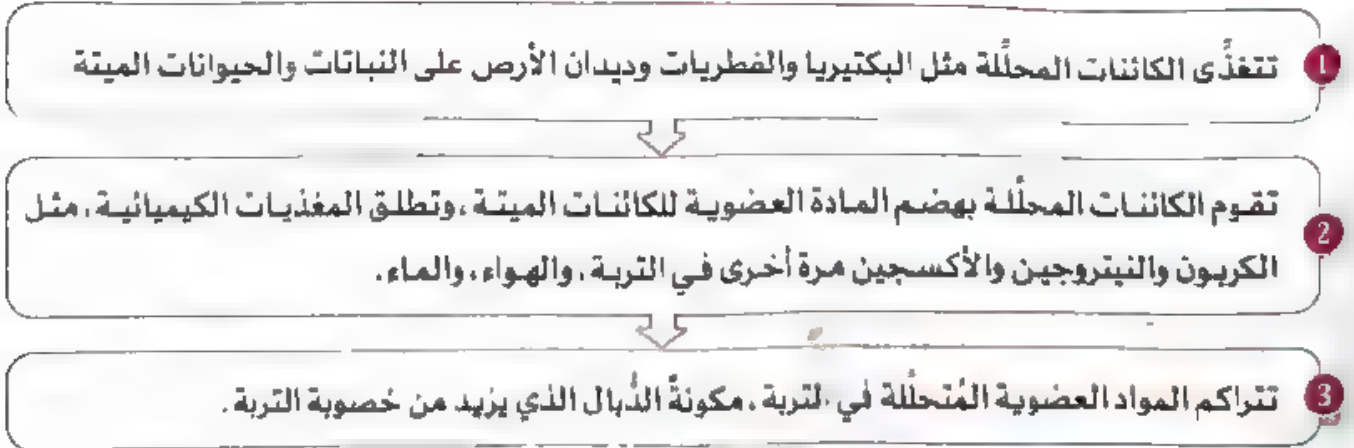 1 تتغذَّى الكائنات المحلِّلة مثل البكتيريا والفطريات وديدان الأرض على النباتات والحيوانات الميتة
2 تقوم الكائنات المحلِّلة بهضم المادة العضوية للكائنات الميتة، وتطلق المغذيات الكيميائية، مثل
الكربون والنيتروجين والأكسجين مرة أخرى في التربة، والهواء، والماء.
3 تتراكم المواد العضوية المُتحلِّلة في التربة، مكونةً الدُّبال الذي يزيد من خصوبة التربة.